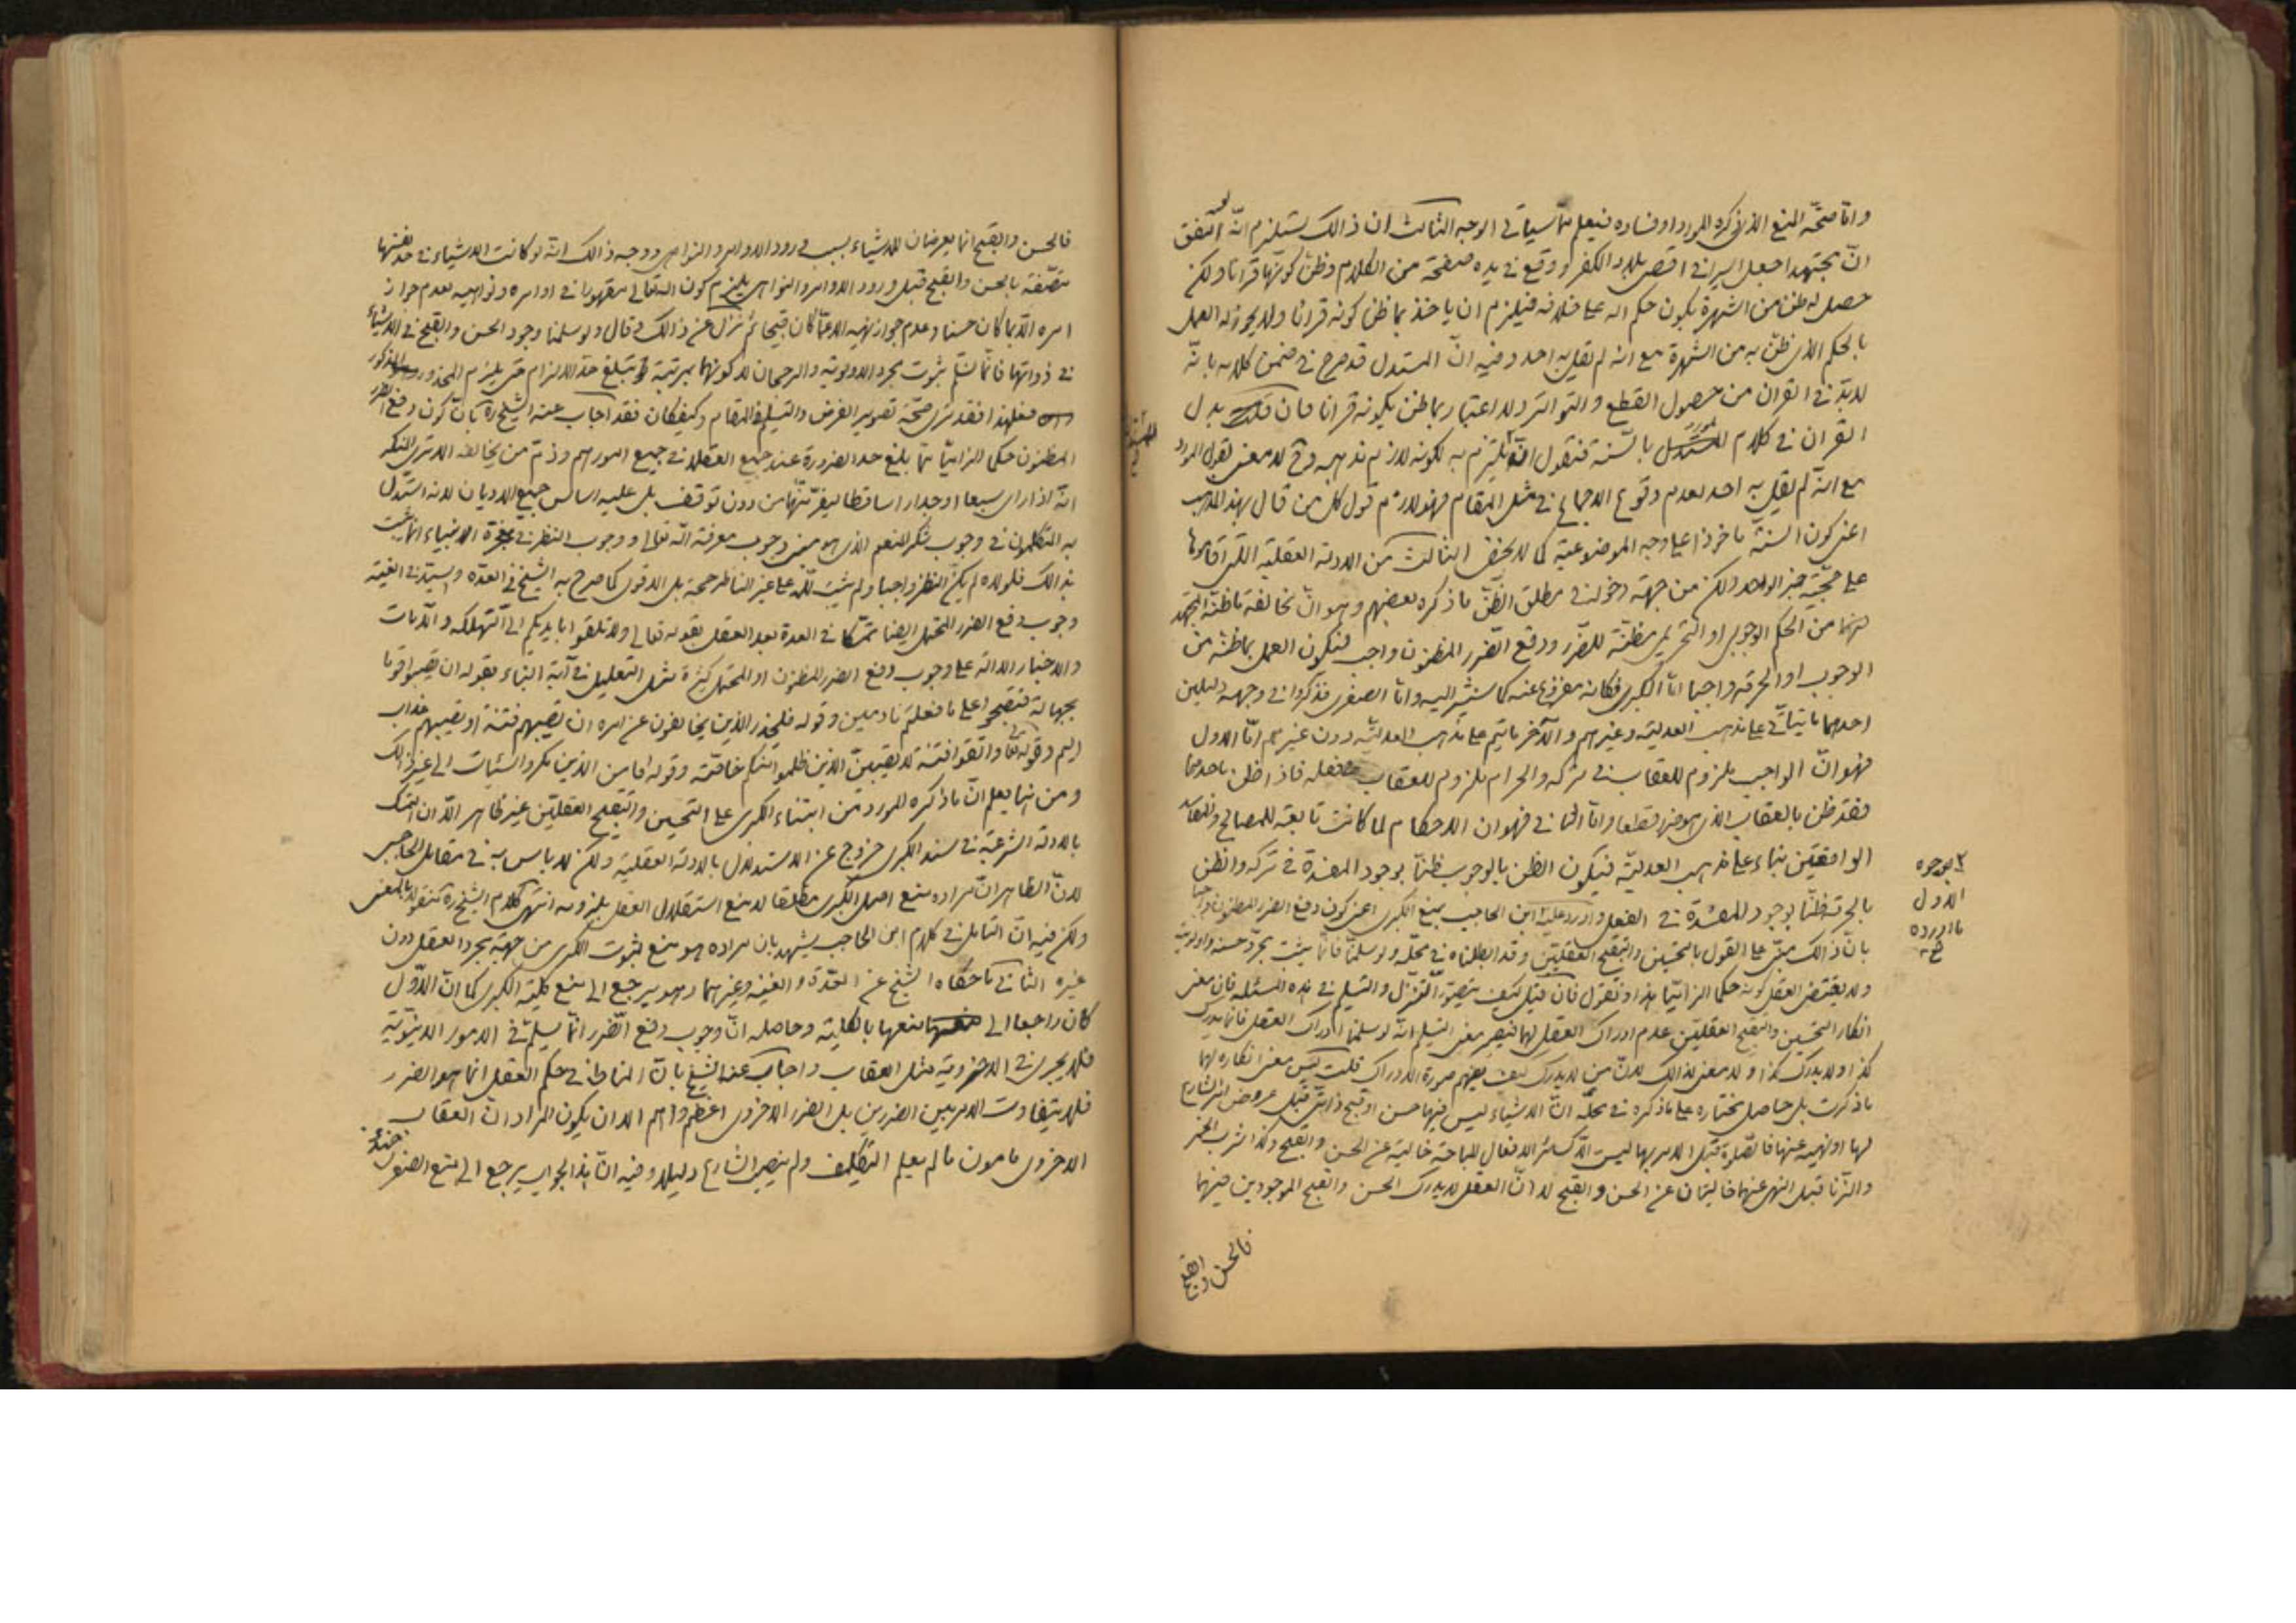 وامّا صحّة المنع الذى ذكره المورد او فساده فيعلم ممّا سياتى الوجه الثالث ان ذالك يستلزم انّه لو اتّفق
انّ مجتهدا جعل اسيرا فى اقصى بلاد الكفر و وقع فى يده صفحة من الكلام وظنّ كونها قرانا ولكن
حصل له ظن من الشهرة بكون حكم الله على خلافه فيلزم ان ياخذ بما ظن كونه قرانا ولا يجوز له العمل
بالحكم الذى ظنّ به من الشهرة مع انه لم يقل به احد وفيه انّ المستدل قد صرح فى ضمن كلامه بانّه
لا بدّ فى القران من حصول القطع و التواتر ولا اعتبار بما ظن بكونه قرانا فان بدل
القران فى كلام المورد بالسّنة فنقول انّه يلتزم به لكونه لازم مذهبه وح لا معنى لقول المورد
مع انّه لم يقل به احد لعدم وقوع الاجماع فى مثل المقام فهو لازم قول كل من قال بهذا المذهب
اعنى كون السنّة ماخوذا على وجه الموضوعية كما لا يخفى الثالث من الادلة العقلية التى اقاموها
على حجّية خبر الواحد ولكن من جهة دخوله فى مطلق الظّن ما ذكره بعضهم وهو انّ مخالفة ما ظنّه المجتهد
من الحكم الوجوبى او التحريمى مظنّة للضّرر ودفع الضّرر المظنون واجب فيكون العمل بما ظنّه من
الوجوب او الحرمة واجبا امّا الكبرى فكانه مفروغ عنه كما سنشير اليه وامّا الصغرى فذكروا فى وجهه دليلين
احدهما ما يتاتّى على مذهب العدلية وغيرهم و الآخر ما يتم على مذهب العدليّه دون غيرهم امّا الاول
فهو انّ الواجب ملزوم للعقاب فى تركه والحرام ملزوم للعقاب فعله فاذا ظن باحدهما
فقد ظن بالعقاب الذى هو ضرر قطعا وامّا الثانى فهو ان الاحكام لما كانت تابعة للمصالح والمفاسد
الواقعيّتين بناء على مذهب العدليّه فيكون الظن بالوجوب ظنّا بوجود المفسدة فى تركه والظن
بالحرمة ظنّا بوجود المفسدة فى الفعل واورد عليه ابن الحاجب بمنع الكبرى اعنى كون دفع الضرر المظنون واجبا
بانّ ذالك مبنّى على القول بالتحسين والتقبيح العقليّين وقد ابطلناه فى محلّه ولو سلّمنا فانّما يثبت مجرّد حسنه واولويته
ولا يقتضى العقل كونه حكما الزاميّا هذا و نقول فان قيل كيف يتصوّر التّنزّل والتسليم فى هذه المسئله فان معنى
انكار التحسين والتقبيح العقليّين عدم ادراك العقل لهما فيصير معنى التسليم انّه لو سلمنا ادراك العقل فانّما يدرك
كذا ولا يدرك كذا و لا معنى لذالك لانّ من لا يدرك كيف يفهم صورة الادراك قلت ليس معنى انكاره لهما
ما ذكرت بل حاصل مختاره على ما ذكره فى محلّه انّ الاشياء ليس فيها حسن او قبح ذاتىّ قبل عروض امر الشارع
لها او نهيه عنها فالصّلوة قبل الامر بها ليست الّا كسائر الافعال المباحة خالية عن الحسن والقبح وكذا شرب الخمر
والزّنا قبل النهى عنهما خاليتان عن الحسن و القبح لا انّ العقل لا يدرك الحسن والقبح الموجودين فيهما
فالحسن والقبح
بوجوه
الاول
ما اورده
فالحسن والقبح انما يعرضان للاشياء بسبب ورود الاوامر والنواهى ووجه ذالك انّه لو كانت الاشياء فى حد نفسها
متّصفة بالحسن والقبح قبل ورود الاوامر والنواهى يلزم كون الله تعالى مقهورا فى اوامره ونواهيه لعدم جواز
امره الّا بما كان حسنا وعدم جواز نهيه الا عمّا كان قبيحا ثم تنزّل عن ذالك قال ولو سلمنا وجود الحسن والقبح فى الاشياء
فى ذواتها فانّما نسلّم ثبوت مجرد الاولوية والرجحان لا كونهما بمرتبة تبلغ حد الالزام حتى يلزم المحذور المذكور
فعلى هذا فقد ترى صحّة تصوير الفرض والتسليم فى المقام وكيف كان فقد اجاب عنه الشيخ ره بانّ كون دفع الضرر
المظنون حكما الزاميّا ممّا بلغ حد الضرورة عند جميع العقلاء فى جميع امورهم وذمّ من يخالفه الا ترى انك
انّه اذا راى سبعا او جدارا ساقطا ليفرّ منهما من دون توقف بل عليه اساس جميع الاديان لانه استدل
به المتكلمون فى وجوب شكر المنعم الذى هو مبنى وجوب معرفة الله تعالى ووجوب النظر فى معجزة الانبياء انما يثبت
بذالك فلولاه لم يكن النظر واجبا ولم يثبت للّه على غير الناظر حجة بل الاقوى كما صرح به الشيخ فى العدّه والسيّد فى الغنيه
وجوب دفع الضرر المحتمل ايضا تمسّكا فى العدة بعد العقل بقوله تعالى ولا تلقوا بايديكم الى التّهلكه و الآيات
والاخبار الدالة على وجوب دفع الضرر المظنون او المحتمل كثيرة مثل التعليل فى آية النباء بقوله ان تصيبوا قوما
بجهالة فتصبحوا على ما فعلتم نادمين وقوله فليحذر الذين يخالفون عن امره ان تصيبهم فتنة او يصيبهم عذاب
اليم وقوله تعالى واتقوا فتنة لا تصيبنّ الذين ظلموا منكم خاصّة وقوله افامن الذين مكروا السّيئات الى غير ذالك
ومن هنا يعلم انّ ما ذكره المورد من ابتناء الكبرى على التحسين والتقبيح العقليّين غير ظاهر الّا ان التمسك
بالادلة الشرعيّة فى سند الكبرى خروج عن الاستدلال بالادلة العقلية ولكن لا باس به فى مقابل الحاجبى
لانّ الظاهر انّ مراده منع اصل الكبرى مطلقا لا منع استقلال العقل بلزومه انتهى كلام الشيخ ره منقولا بالمعنى
ولكن فيه انّ التامل فى كلام ابن الحاجب يشهد بان مراده هو منع ثبوت الكبرى من جهة مجرد العقل دون
غيره الثانى ما حكاه الشيخ عن العدّة و الغنيه وغيرهما وهو يرجع الى منع كلية الكبرى كما انّ الاّوّل
كان راجعا الى منعها بالكلية وحاصله انّ وجوب دفع الضّرر انّما يسلم فى الامور الدينويّة
فلا يجرى فى الاخروية مثل العقاب واجاب عنه الشيخ بانّ المناط فى حكم العقل انما هو الضرر
فلا يتفاوت الامر بين الضررين بل الضرر الاخروى اعظم واهم الا ان يكون المراد انّ العقاب
الاخروى مامون ما لم يعلم التكليف ولم ينصب الشارع دليلا وفيه انّ هذا الجواب يرجع الى منع الصغرى حينئذ